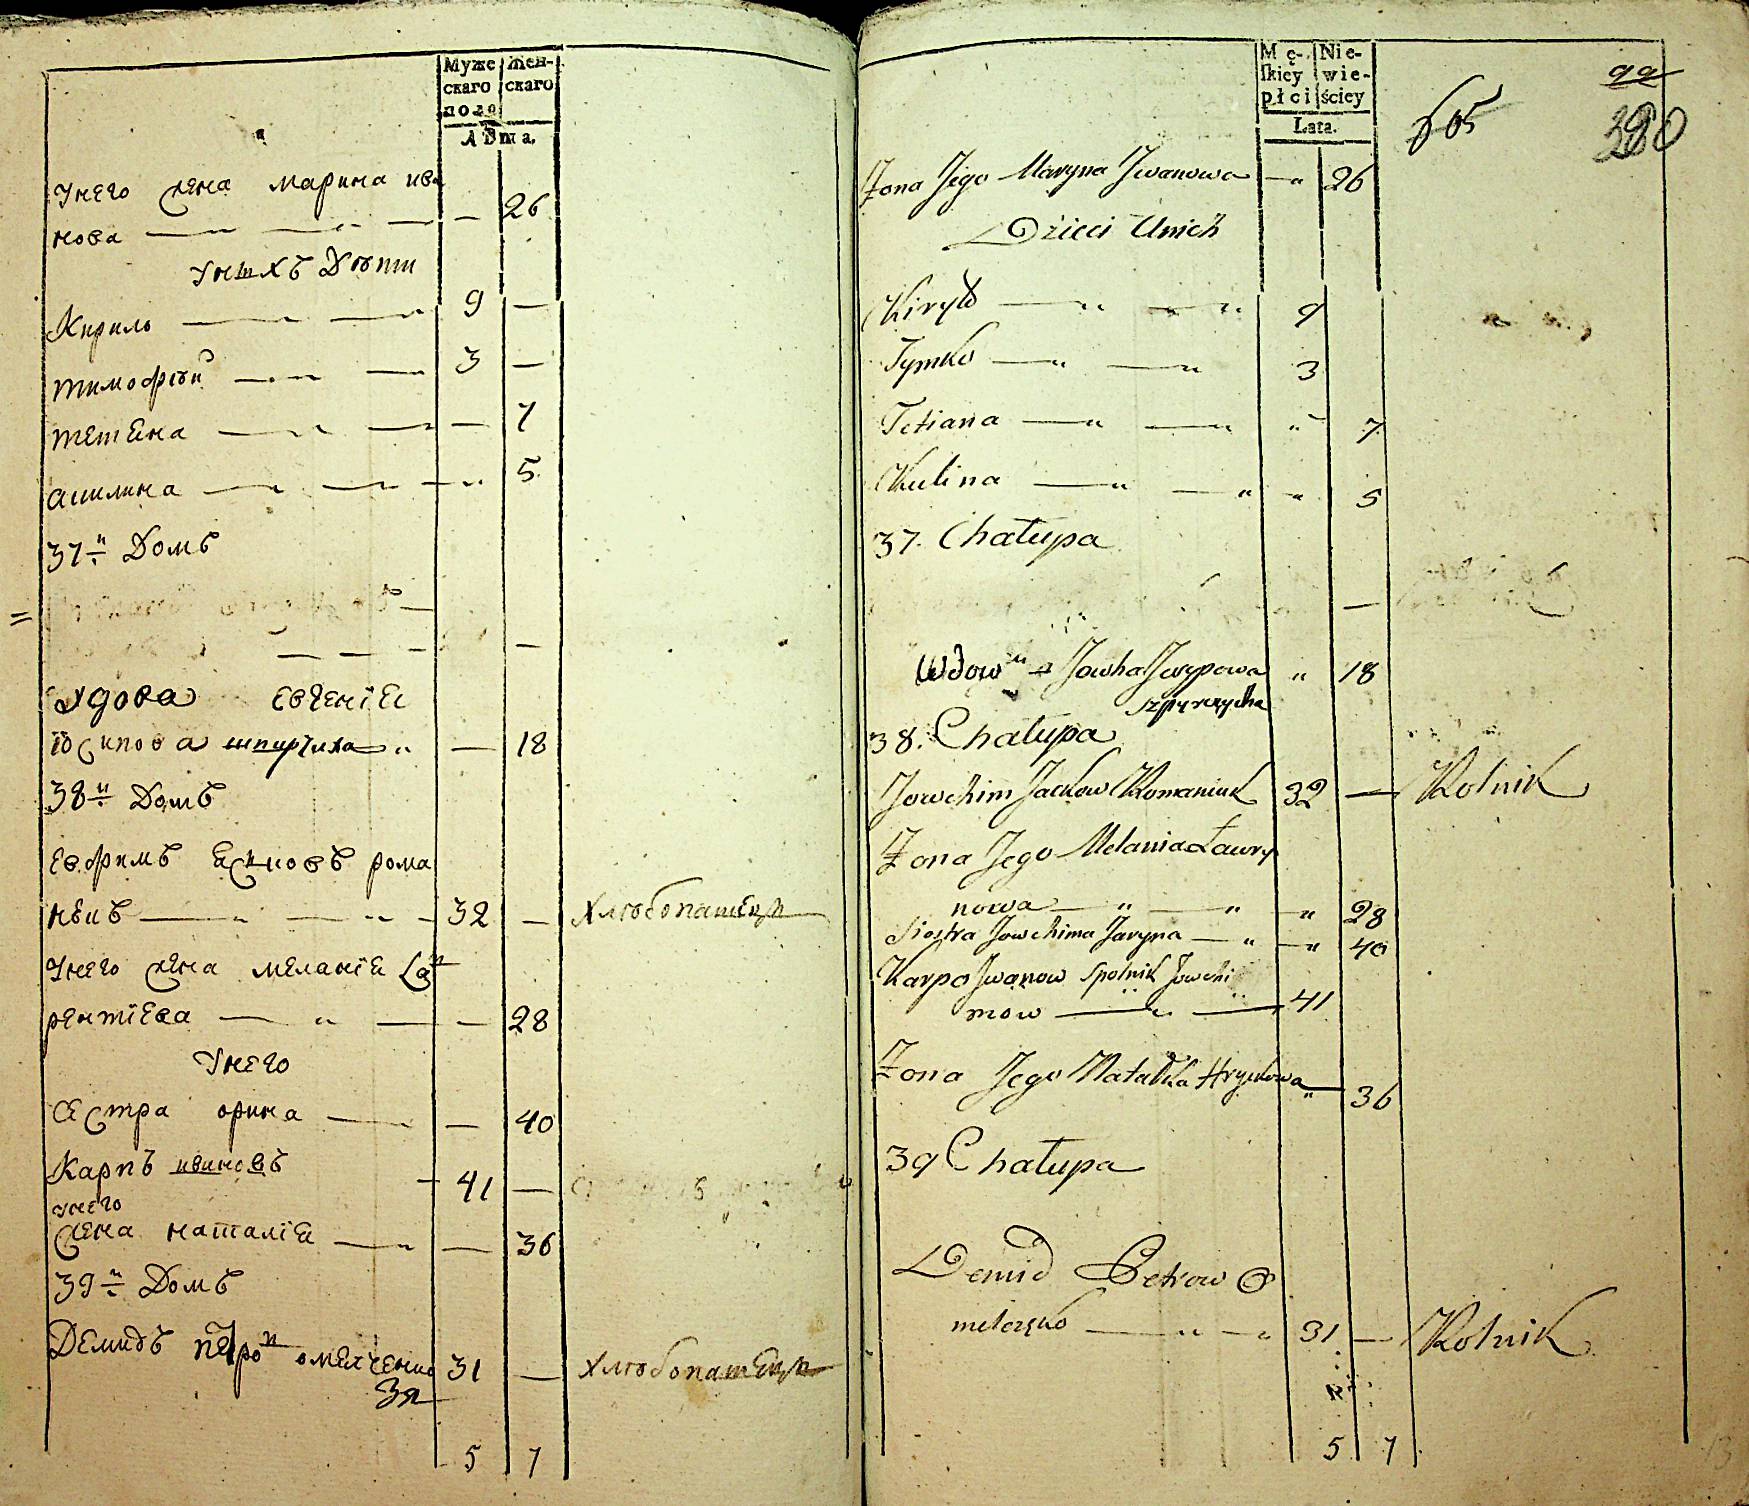 Муже
скаго
пола
Жен-
скаго
Лѣта.
У него жена марина ива
нова 26
У нихъ Дѣти
Кирило 9 —
тимофѣй 3 —
тетяна — 7
акилина — 5
37й Домъ
—
—
удова евгенія
юсипова шпирчиха — 18
38й Домъ
евфимъ яцковъ рома
нюкъ 32 — хлѣбопашецъ
У него жена меланія Лав
рентіева — 28
У него
сестра орина — 40
Карпъ ивановъ 41 —
у него
жена наталія — 36
39й Домъ
Демидъ петровъ омелченко 31 — хлѣбопашецъ
5 7
Mę-
skiey
płci
Nie-
wie-
ściey
Lata.
605
99
380
Żona Jego Maryna Jwanowa — 26
Dzieci Unich
Kiryło 9
Tymko 3
Tetiana " 7
Kulina " 5
37. Chałupa
—
Wdowa Jowha Juzypowa " 18
Szpyrczycha
38. Chałupa
Jowchim Jackow Romaniuk 32 — Rolnik
Żona Jego Melania Ławry
nowa " 28
Siostra Jowchima Jaryna " 40
Karpo Jwanow Spolnik Jowchi
mow 41
Żona Jego Natalka Hryckowa " 36
39 Chałupa
Demid Petrow O
melczęko 31 — Rolnik
5 7